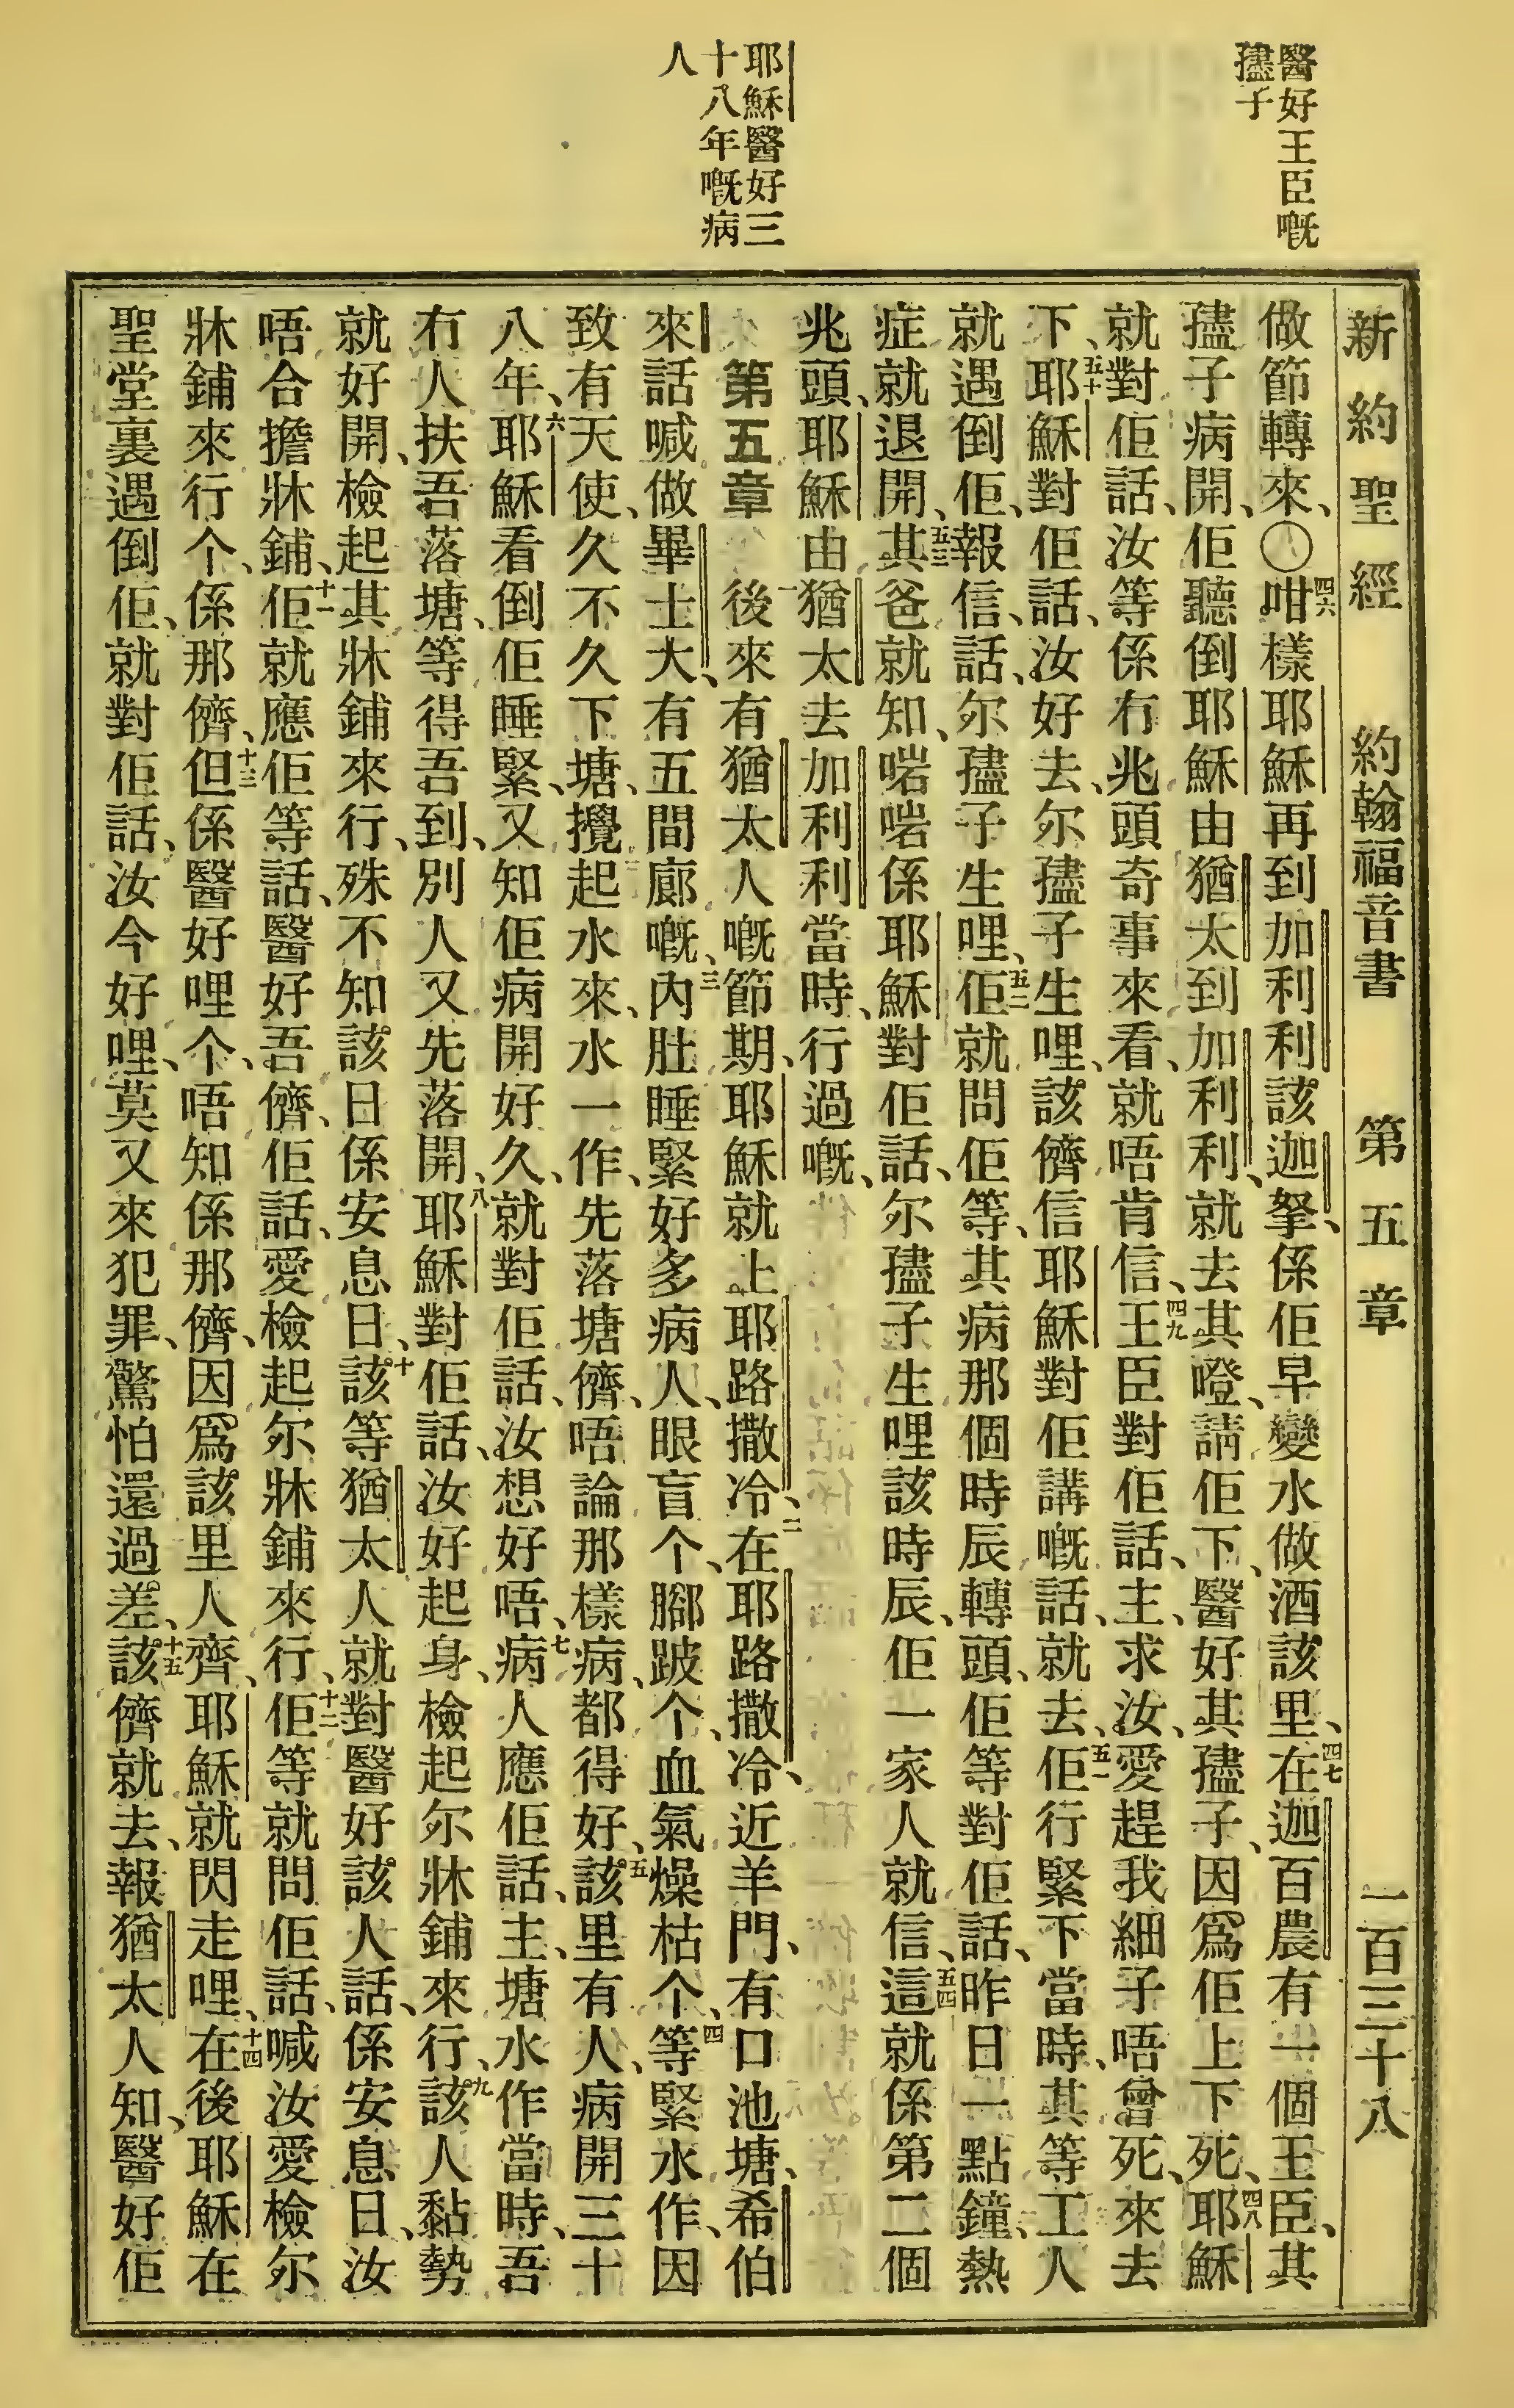 醫好王臣嘅
孻子
耶穌醫好三
十八年嘅病
人
新約聖經 約翰福音書 第五章 一百三十八
做節轉來、〇四六咁樣耶穌再到加利利該迦拏、係佢早變水做酒該里、四七在迦百農有一個王臣、其
孻子病開、佢聽倒耶穌由猶太到加利利、就去其嶝、請佢下、醫好其孻子、因爲佢上下死、四八耶穌
就對佢話、汝等係冇兆頭奇事來看、就唔肯信、四九王臣對佢話、主、求汝、愛趕我細子唔曾死、來去
下、五十耶穌對佢話、汝好去、尔孻子生哩、該儕信耶穌對佢講嘅話、就去、五一佢行緊下當時、其等工人
就遇倒佢、報信、話、尔孻子生哩、五二佢就問佢等、其病那個時辰轉頭、佢等對佢話、昨日一點鐘、熱
症就退開、五三其爸就知、啱啱係耶穌對佢話、尔孻子生哩該時辰、佢一家人就信、五四這就係第二個
兆頭、耶穌由猶太去加利利當時、行過嘅、
第五章 一後來有猶太人嘅節期、耶穌就上耶路撒冷、二在耶路撒冷、近羊門、有口池塘、希伯
來話喊做畢士大、有五間廊嘅、三內肚睡緊好多病人、眼盲个、腳跛个、血氣燥枯个、四等緊水作、因
致有天使、久不久下塘、攪起水來、水一作、先落塘儕、唔論那樣病、都得好、五該里有人、病開三十
八年、六耶穌看倒佢睡緊、又知佢病開好久、就對佢話、汝想好唔、七病人應佢話、主、塘水作當時、吾
冇人扶吾落塘、等得吾到、別人又先落開、八耶穌對佢話、汝好起身、檢起尔牀鋪來行、九該人黏勢
就好開、檢起其牀鋪來行、殊不知該日係安息日、十該等猶太人就對醫好該人話、係安息日、汝
唔合擔牀鋪、十一佢就應佢等話、醫好吾儕、佢話、愛檢起尔牀鋪來行、十二佢等就問佢話、喊汝愛檢尔
牀鋪來行个、係那儕、十三但係醫好哩个、唔知係那儕、因爲該里人齊、耶穌就閃走哩、十四在後耶穌在
聖堂裏遇倒佢、就對佢話、汝今好哩、莫又來犯罪、驚怕還過差、十五該儕就去、報猶太人知、醫好佢